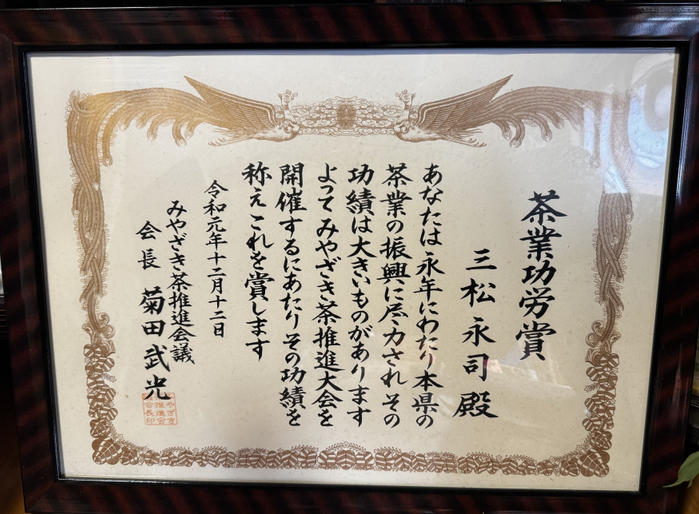 茶業功労賞
三松永司殿
あなたは永年にわたり本県の
茶業の振興に尽力されその
功績は大きいものがあります
よってみやざき茶推進大会を
開催するにあたりその功績を
称えこれを賞します
令和元年十二月十二日
みやざき茶推進会議
会長 菊田武光